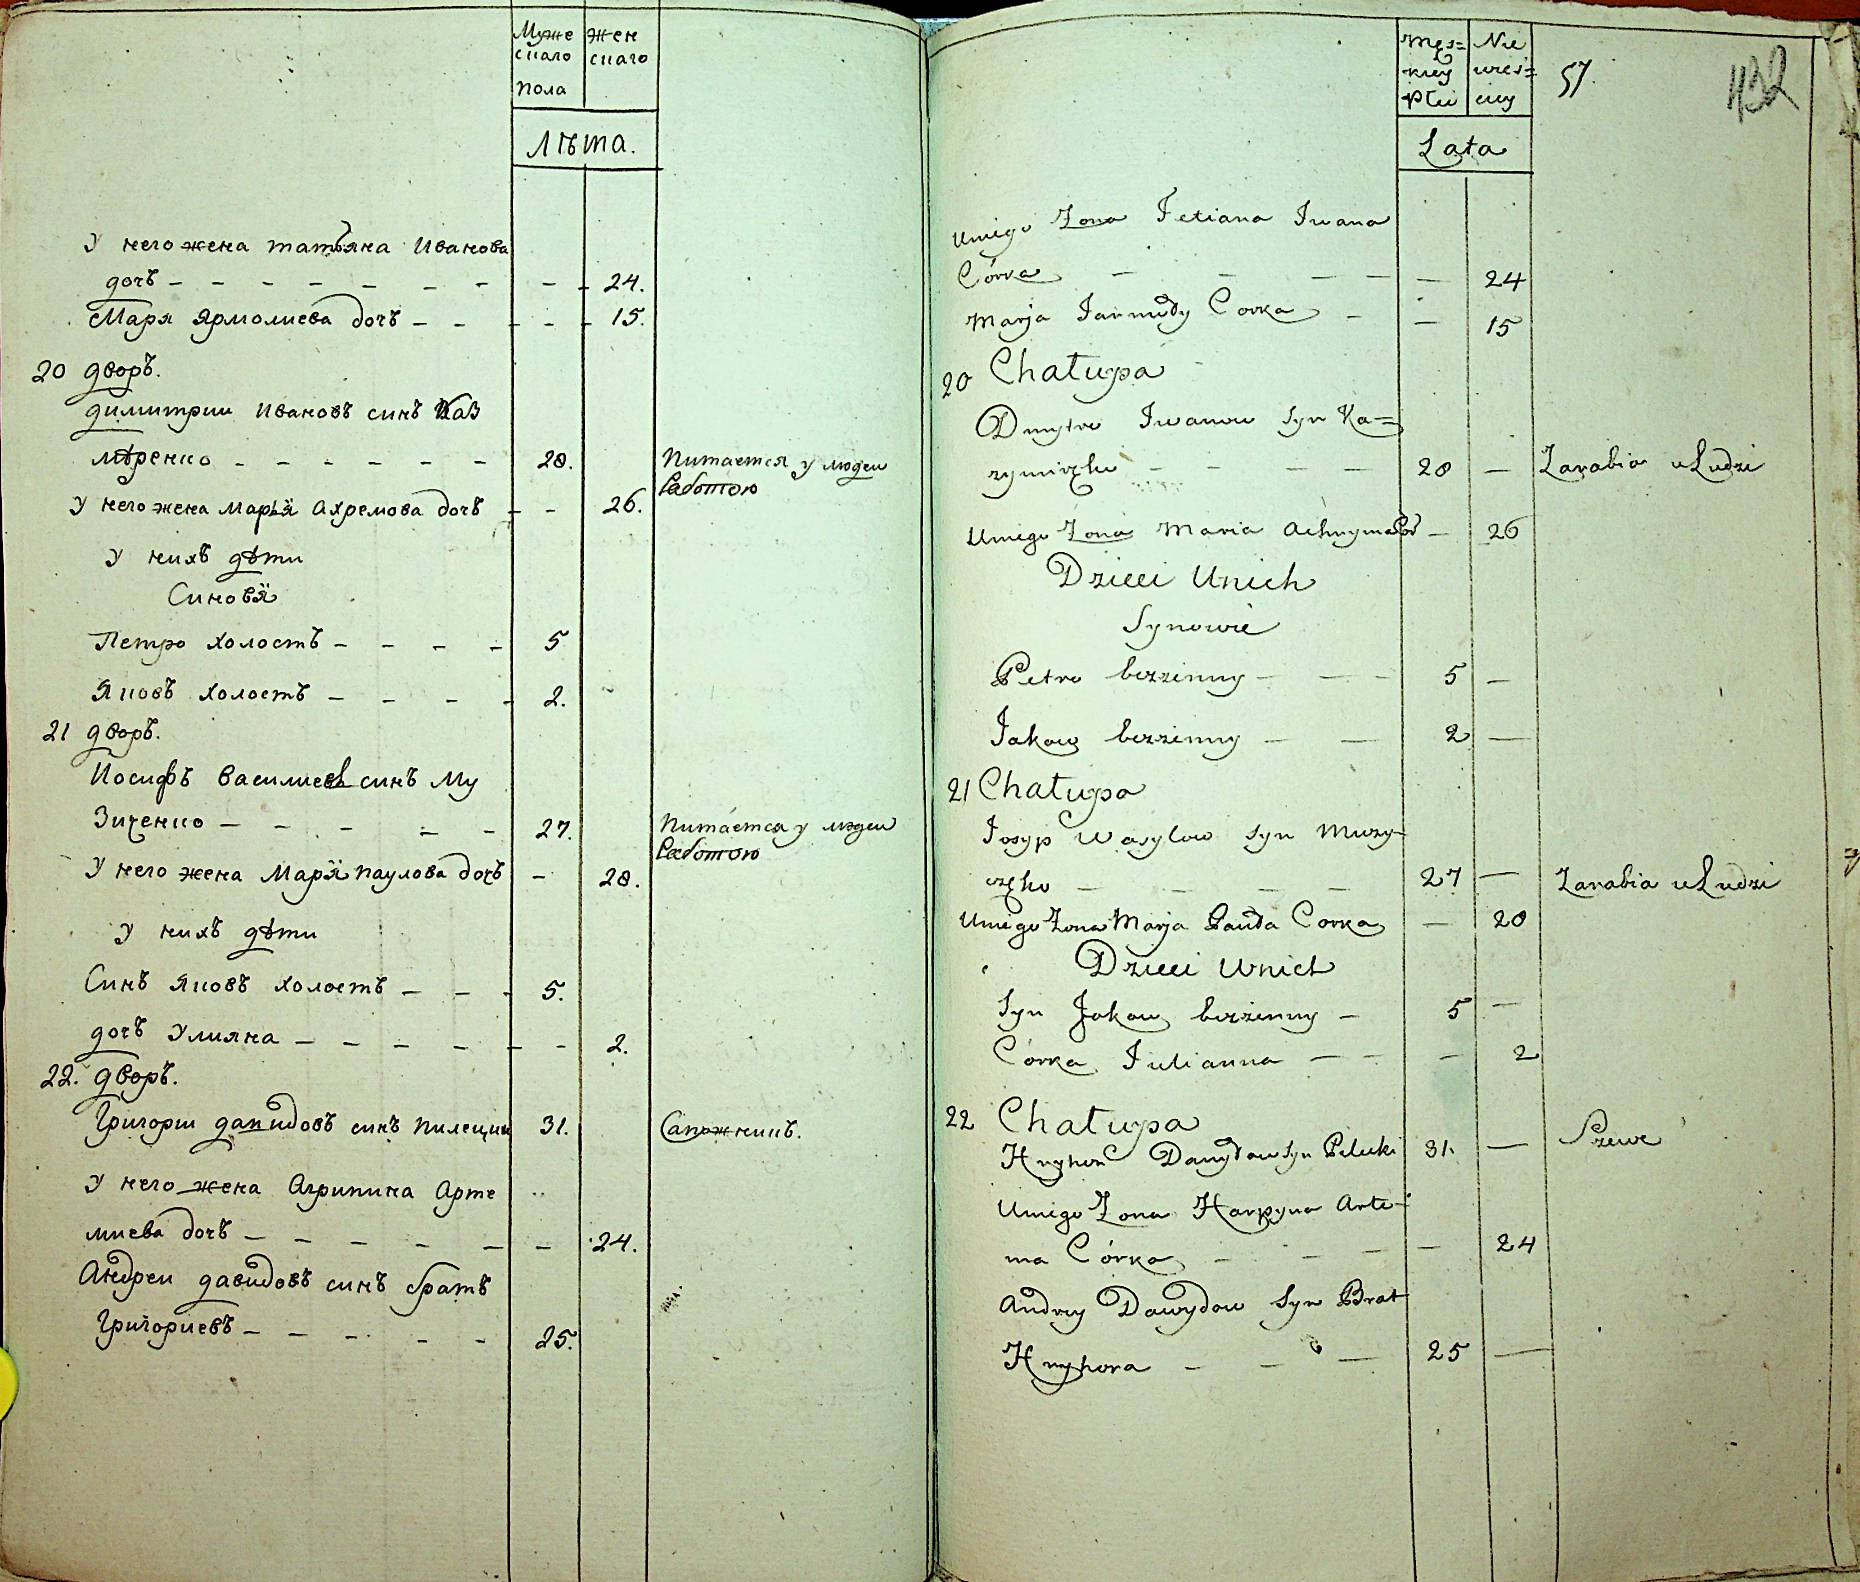 Муже
скаго
пола
жен
скаго
Лѣта.
У него жена татьяна Иванова
дочъ – – – – – – – – – 24.
Маря Ярмолиева дочъ – – – – – 15.
20 дворъ.
димитрии Ивановъ синъ Каз
мѣренко – – – – – – 28.
Питается у людеи
Работою
У него жена Марья Ахремова дочъ – – 26.
У нихъ дѣти
Синовя
Петро холостъ – – – – 5
Яковъ холостъ – – – – 2.
21 дворъ.
Иосифъ Василиевъ синъ Му
Зиченко – – – – – 27.
Питается у людеи
Работою
У него жена Маря паулова дочъ – 28.
У нихъ дѣти
Синъ Яковъ холостъ – – – 5.
дочъ Улияна – – – – – – 2.
22. дворъ.
Григории давидовъ синъ пилецкии 31.
Сапожникъ.
У него жена Агрипина Арте
миева дочъ – – – – – – 24.
Андреи давидовъ синъ братъ
Григориевъ – – – – – 25.
Męs=
kiey
Płci
Nie
wieś=
ciey
57.
432
Lata
U niego Żona Tetiana Iwana
Córka – – – – – 24
Marja Jarmudy Corka – – 15
20 Chałupa
Dmytro Iwanow Syn Ka=
zymirzko – – – – 28 –
Zarabia u Ludzi
U niego Żona Maria Achryma Cor – 26
Dzieci U nich
Synowie
Petro bezżenny – – – 5 –
Jakow bezżenny – – 2 –
21 Chałupa
Josyp Wasylow Syn Muzy-
częko – – – – 27 –
Zarabia u Ludzi
U niego Żona Marja Pauła Corka – 28
Dzieci U nich
Syn Jakow bezżenny – 5 –
Córka Julianna – – – 2
22 Chałupa
Hryhor Dawydow Syn Pilecki 31. –
Szewc
U niego Żona Harpyna Arte-
ma Córka – – – – – 24
Andrey Dawydow Syn Brat
Hryhora – – – 25 –